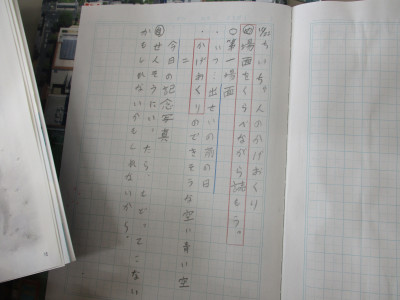 ちいちゃんのかげおくり
場面をくらべながら読もう。
○第一場面
・いつ…出せいの前の日
・かげおくりのできそうな空い青い空
=
今日の記念写真
せんそうにいったら、もどってこない
かもしれないかもしれないから。